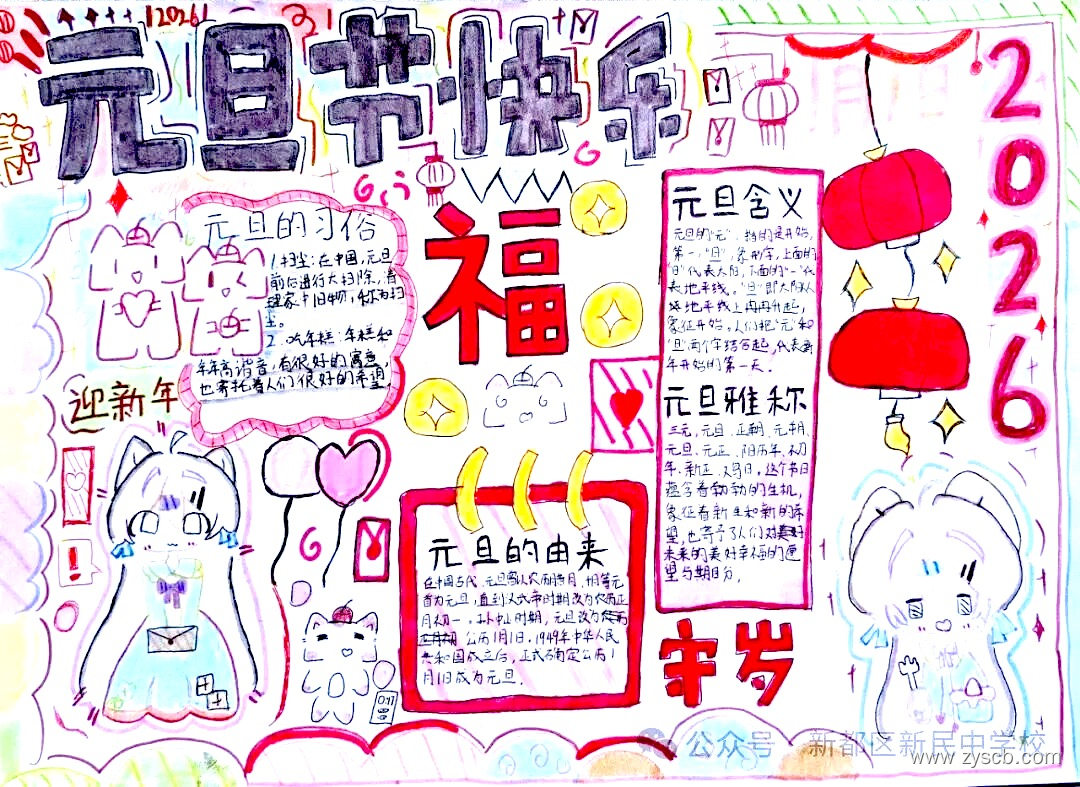 !2026!
元旦节快乐
2026
元旦的习俗
1.扫尘:在中国,元旦
前后进行大扫除,清
理家中旧物,称为扫
尘。
2.吃年糕:年糕和
年年高谐音,有很好的寓意,
也寄托着人们很好的希望。
迎新年
福
元旦含义
元旦的"元",指的是开始,
第一,"旦",象形字,上面的
"日"代表太阳,下面的"一"代
表地平线。"旦"即太阳从
地平线上冉冉升起,
象征开始,人们把"元"和
"旦"两个字结合起,代表新
年开始的第一天。
元旦雅称
三元,元旦、正朝、元朔、
元旦、元正、阳历年、初
年、新正、鸡日,这个节日
蕴含着勃勃的生机,
象征着新生和新的希
望,也寄予了人们对
未来的美好幸福的愿
望与期盼。
元旦的由来
在中国古代,元旦
首为元旦,直到汉武帝时期改为农历正
月初一,时期,元旦改为
公历1月1日,1949年中华人民
共和国成立后,正式确定公历1
月1日成为元旦.
守岁
公众号·新都区新民中学校
www.zyscb.com